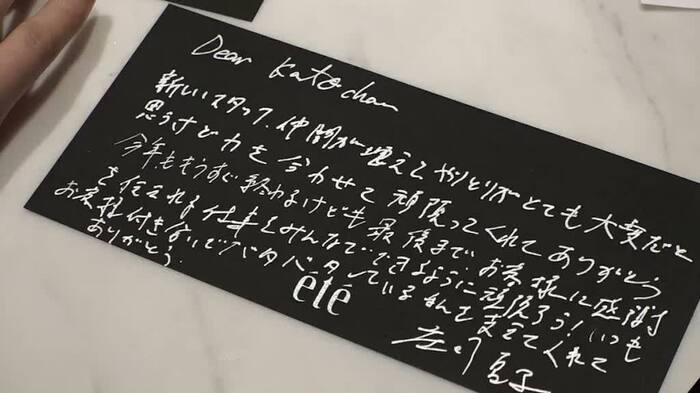 Dear Katochan
新しいスタッフ、仲間が増えて やりとりがとても大変だと
思うけど力を合わせて 頑張ってくれてありがとう
今年ももうすぐ終わるけども最後まで お客様に感謝
を伝えれる仕事をみんなでできるように頑張ろう！いつも
お客様付きないでバタバタしているなんて支えてくれて
ありがとう.
été